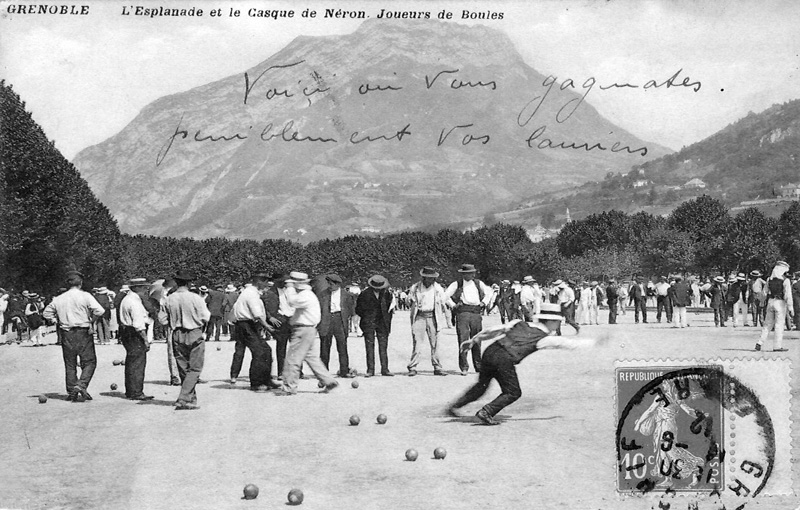 GRENOBLE L'Esplanade et le Casque de Néron. Joueurs de Boules
Voiçi où vous gagnates.
peniblement vos lauriers
REPUBLIQUE
10c POSTES